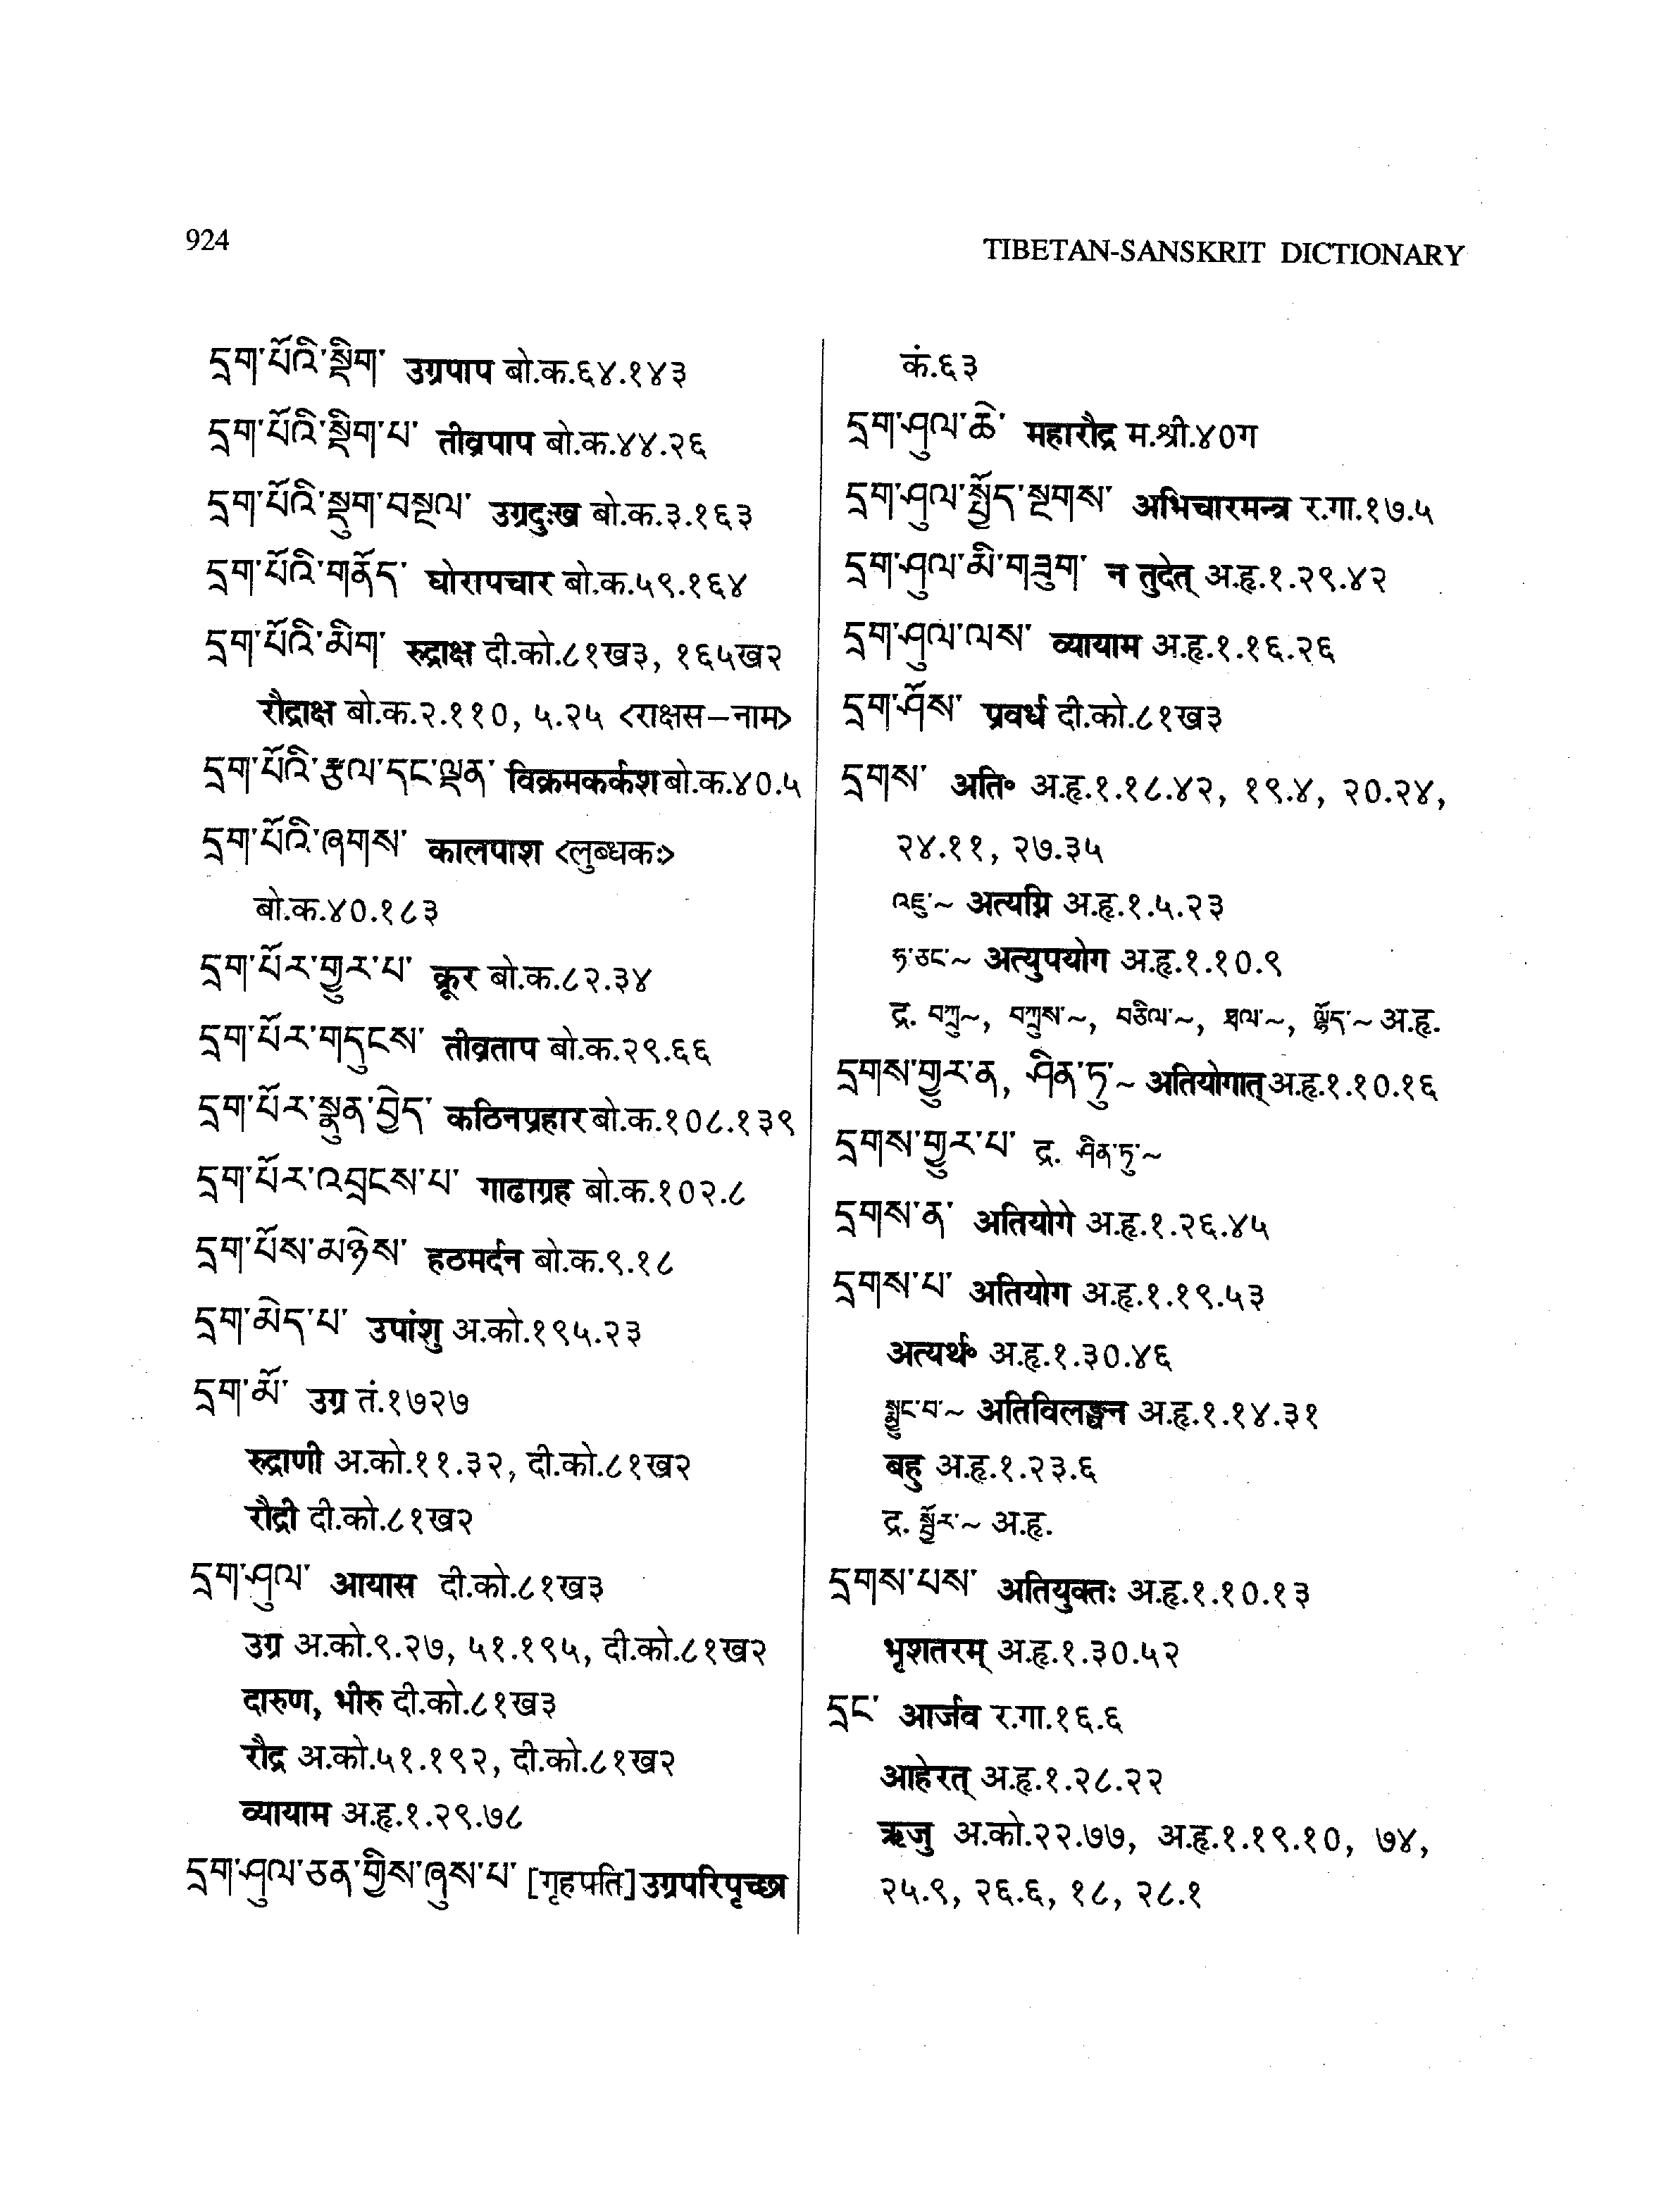 924
TIBETAN-SANSKRIT DICTIONARY
དྲག་པོའི་སྡིག་ उग्रपाप बो.क.६४.१४३
དྲག་པོའི་སྡིག་པ་ तीव्रपाप बो.क.४४.२६
དྲག་པོའི་སྡུག་བསྔལ་ उग्रदुःख बो.क.३.१६३
དྲག་པོའི་གནོད་ घोरापचार बो.क.५९.१६४
དྲག་པོའི་མིག་ रुद्राक्ष दी.को.८१ख३, १६५ख२
रौद्राक्ष बो.क.२.११०, ५.२५ <राक्षस–नाम>
དྲག་པོའི་རྩལ་དང་ལྡན་ विक्रमकर्कश बो.क.४०.५
དྲག་པོའི་ཞགས་ कालपाश <लुब्धकः>
बो.क.४०.१८३
དྲག་པོར་གྱུར་པ་ क्रूर बो.क.८२.३४
དྲག་པོར་གདུངས་ तीव्रताप बो.क.२९.६६
དྲག་པོར་སྣུན་བྱེད་ कठिनप्रहार बो.क.१०८.१३९
དྲག་པོར་འབྲངས་པ་ गाढाग्रह बो.क.१०२.८
དྲག་པོས་མཉེས་ हठमर्दन बो.क.९.१८
དྲག་མེད་པ་ उपांशु अ.को.१९५.२३
དྲག་མོ་ उग्र तं.१७२७
रुद्राणी अ.को.११.३२, दी.को.८१ख२
रौद्री दी.को.८१ख२
དྲག་ཤུལ་ आयास दी.को.८१ख३
उग्र अ.को.९.२७, ५१.१९५, दी.को.८१ख२
दारुण, भीरु दी.को.८१ख३
रौद्र अ.को.५१.१९२, दी.को.८१ख२
व्यायाम अ.हृ.१.२९.७८
དྲག་ཤུལ་ཅན་གྱིས་ཞུས་པ་ [गृहपति] उग्रपरिपृच्छा
कं.६३
དྲག་ཤུལ་ཆེ་ महारौद्र म.श्री.४०ग
དྲག་ཤུལ་སྤྱོད་སྔགས་ अभिचारमन्त्र र.गा.१७.५
དྲག་ཤུལ་མི་གཟུག་ न तुदेत् अ.हृ.१.२९.४२
དྲག་ཤུལ་ལས་ व्यायाम अ.हृ.१.१६.२६
དྲག་ཤོས་ प्रवर्ध दी.को.८१ख३
དྲགས་ अति॰ अ.हृ.१.१८.४२, १९.४, २०.२४,
२४.११, २७.३५
འཇུ་~ अत्यग्नि अ.हृ.१.५.२३
ཧ་ཅང་~ अत्युपयोग अ.हृ.१.१०.९
द्र. བཀྲུ~, བཀྲུས་~, བཅིལ་~, ཐལ་~, ལྷོད་~ अ.हृ.
དྲགས་གྱུར་ན, ཤིན་ཏུ་~ अतियोगात् अ.हृ.१.१०.१६
དྲགས་གྱུར་པ་ द्र. ཤིན་ཏུ་~
དྲགས་ན་ अतियोगे अ.हृ.१.२६.४५
དྲགས་པ་ अतियोग अ.हृ.१.१९.५३
अत्यर्थ॰ अ.हृ.१.३०.४६
སྨྱུང་བ་~ अतिविलङ्घन अ.हृ.१.१४.३१
बहु अ.हृ.१.२३.६
द्र. སྦྱོར་~ अ.हृ.
དྲགས་པས་ अतियुक्तः अ.हृ.१.१०.१३
भृशतरम् अ.हृ.१.३०.५२
དྲང་ आर्जव र.गा.१६.६
आहेरत् अ.हृ.१.२८.२२
ऋजु अ.को.२२.७७, अ.हृ.१.१९.१०, ७४,
२५.९, २६.६, १८, २८.१